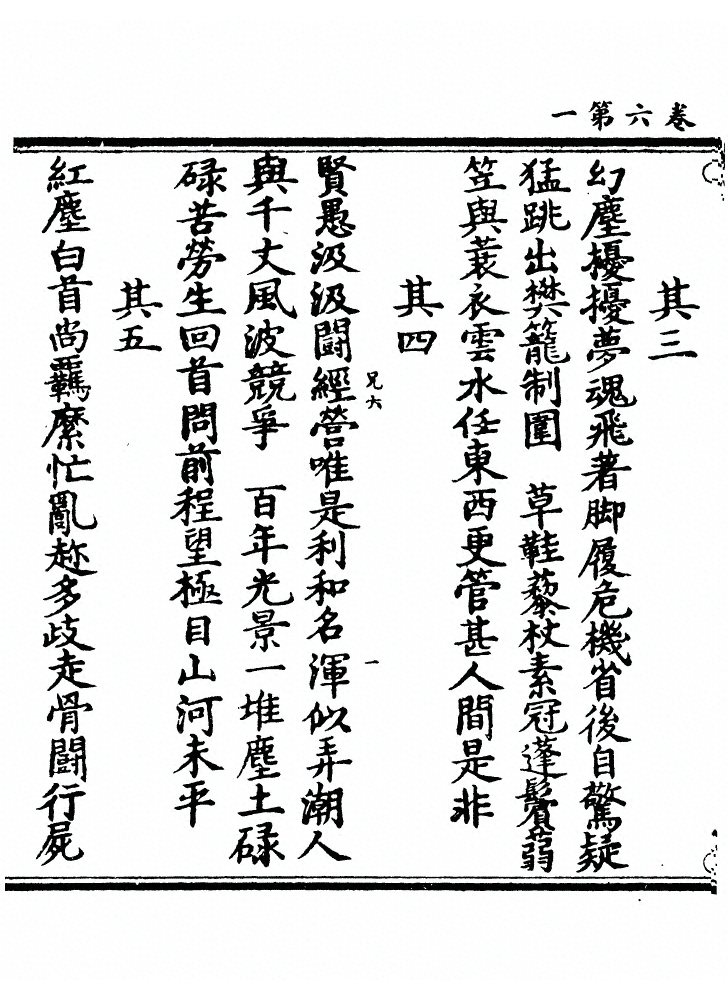 卷六第一
其三
幻塵擾擾夢魂飛著脚履危機省後自驚疑
猛跳出樊籠制圍　草鞋藜杖素冠蓬鬢蒻
笠與蓑衣雲水任東西更管甚人間是非
其四
兄六　一
賢愚汲汲鬪經營唯是利和名渾似弄潮人
與千丈風波競爭　百年光景一堆塵土碌
碌苦勞生回首問前程望極目山河未平
其五
紅塵白首尚羈縻忙亂趂多歧走骨鬪行屍